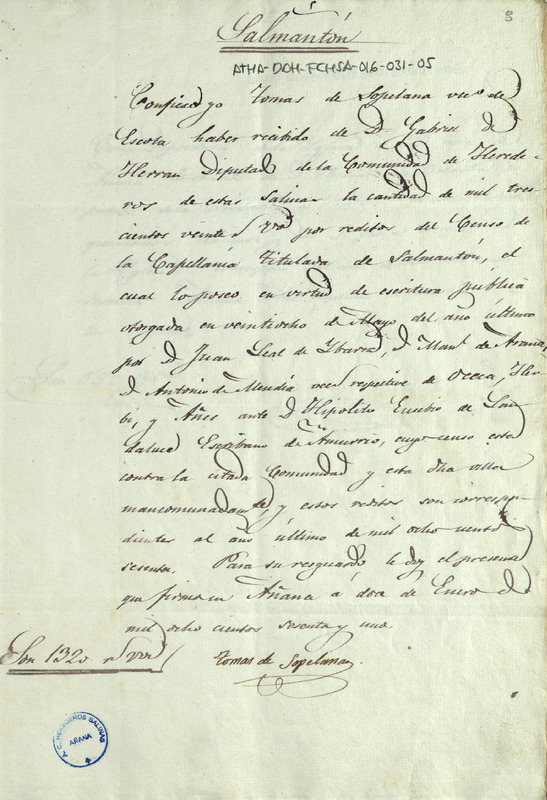 8
Salmantón
ATHA-DOH-FCHSA-016-031-05
Confieso yo Tomas de Sopelana vec.º de
Escota haber recibido de D. Gabriel de
Herran Diputado de la Comunidad de Herede-
ros de estas Salinas la cantidad de mil tres-
cientos veinte rs von por reditos del Censo de
la Capellanía titulada de Salmantón, el
cual lo poseo en virtud de escritura publica
otorgada en veintiocho de Mayo del año último
por D. Juan Leal de Ybarra, D. Man.l de Arana,
D. Antonio de Mendia vecs respective de Oceca, Her-
bi, y Añes ante D. Hipolito Eusebio de
daluce Escribano de Amurrio, cuyo censo está
contra la citada Comunidad y esta dha villa
mancomunadam.te, y estos reditos son correspon-
dientes al año último de mil ocho cientos
sesenta. Para su resguardo le doy el presente
que firmo en Añana á doce de Enero de
mil ocho cientos sesenta y uno.
Son 1320 rs von
Tomas de Sopelana
A.C. HEREDEROS SALINAS
AÑANA